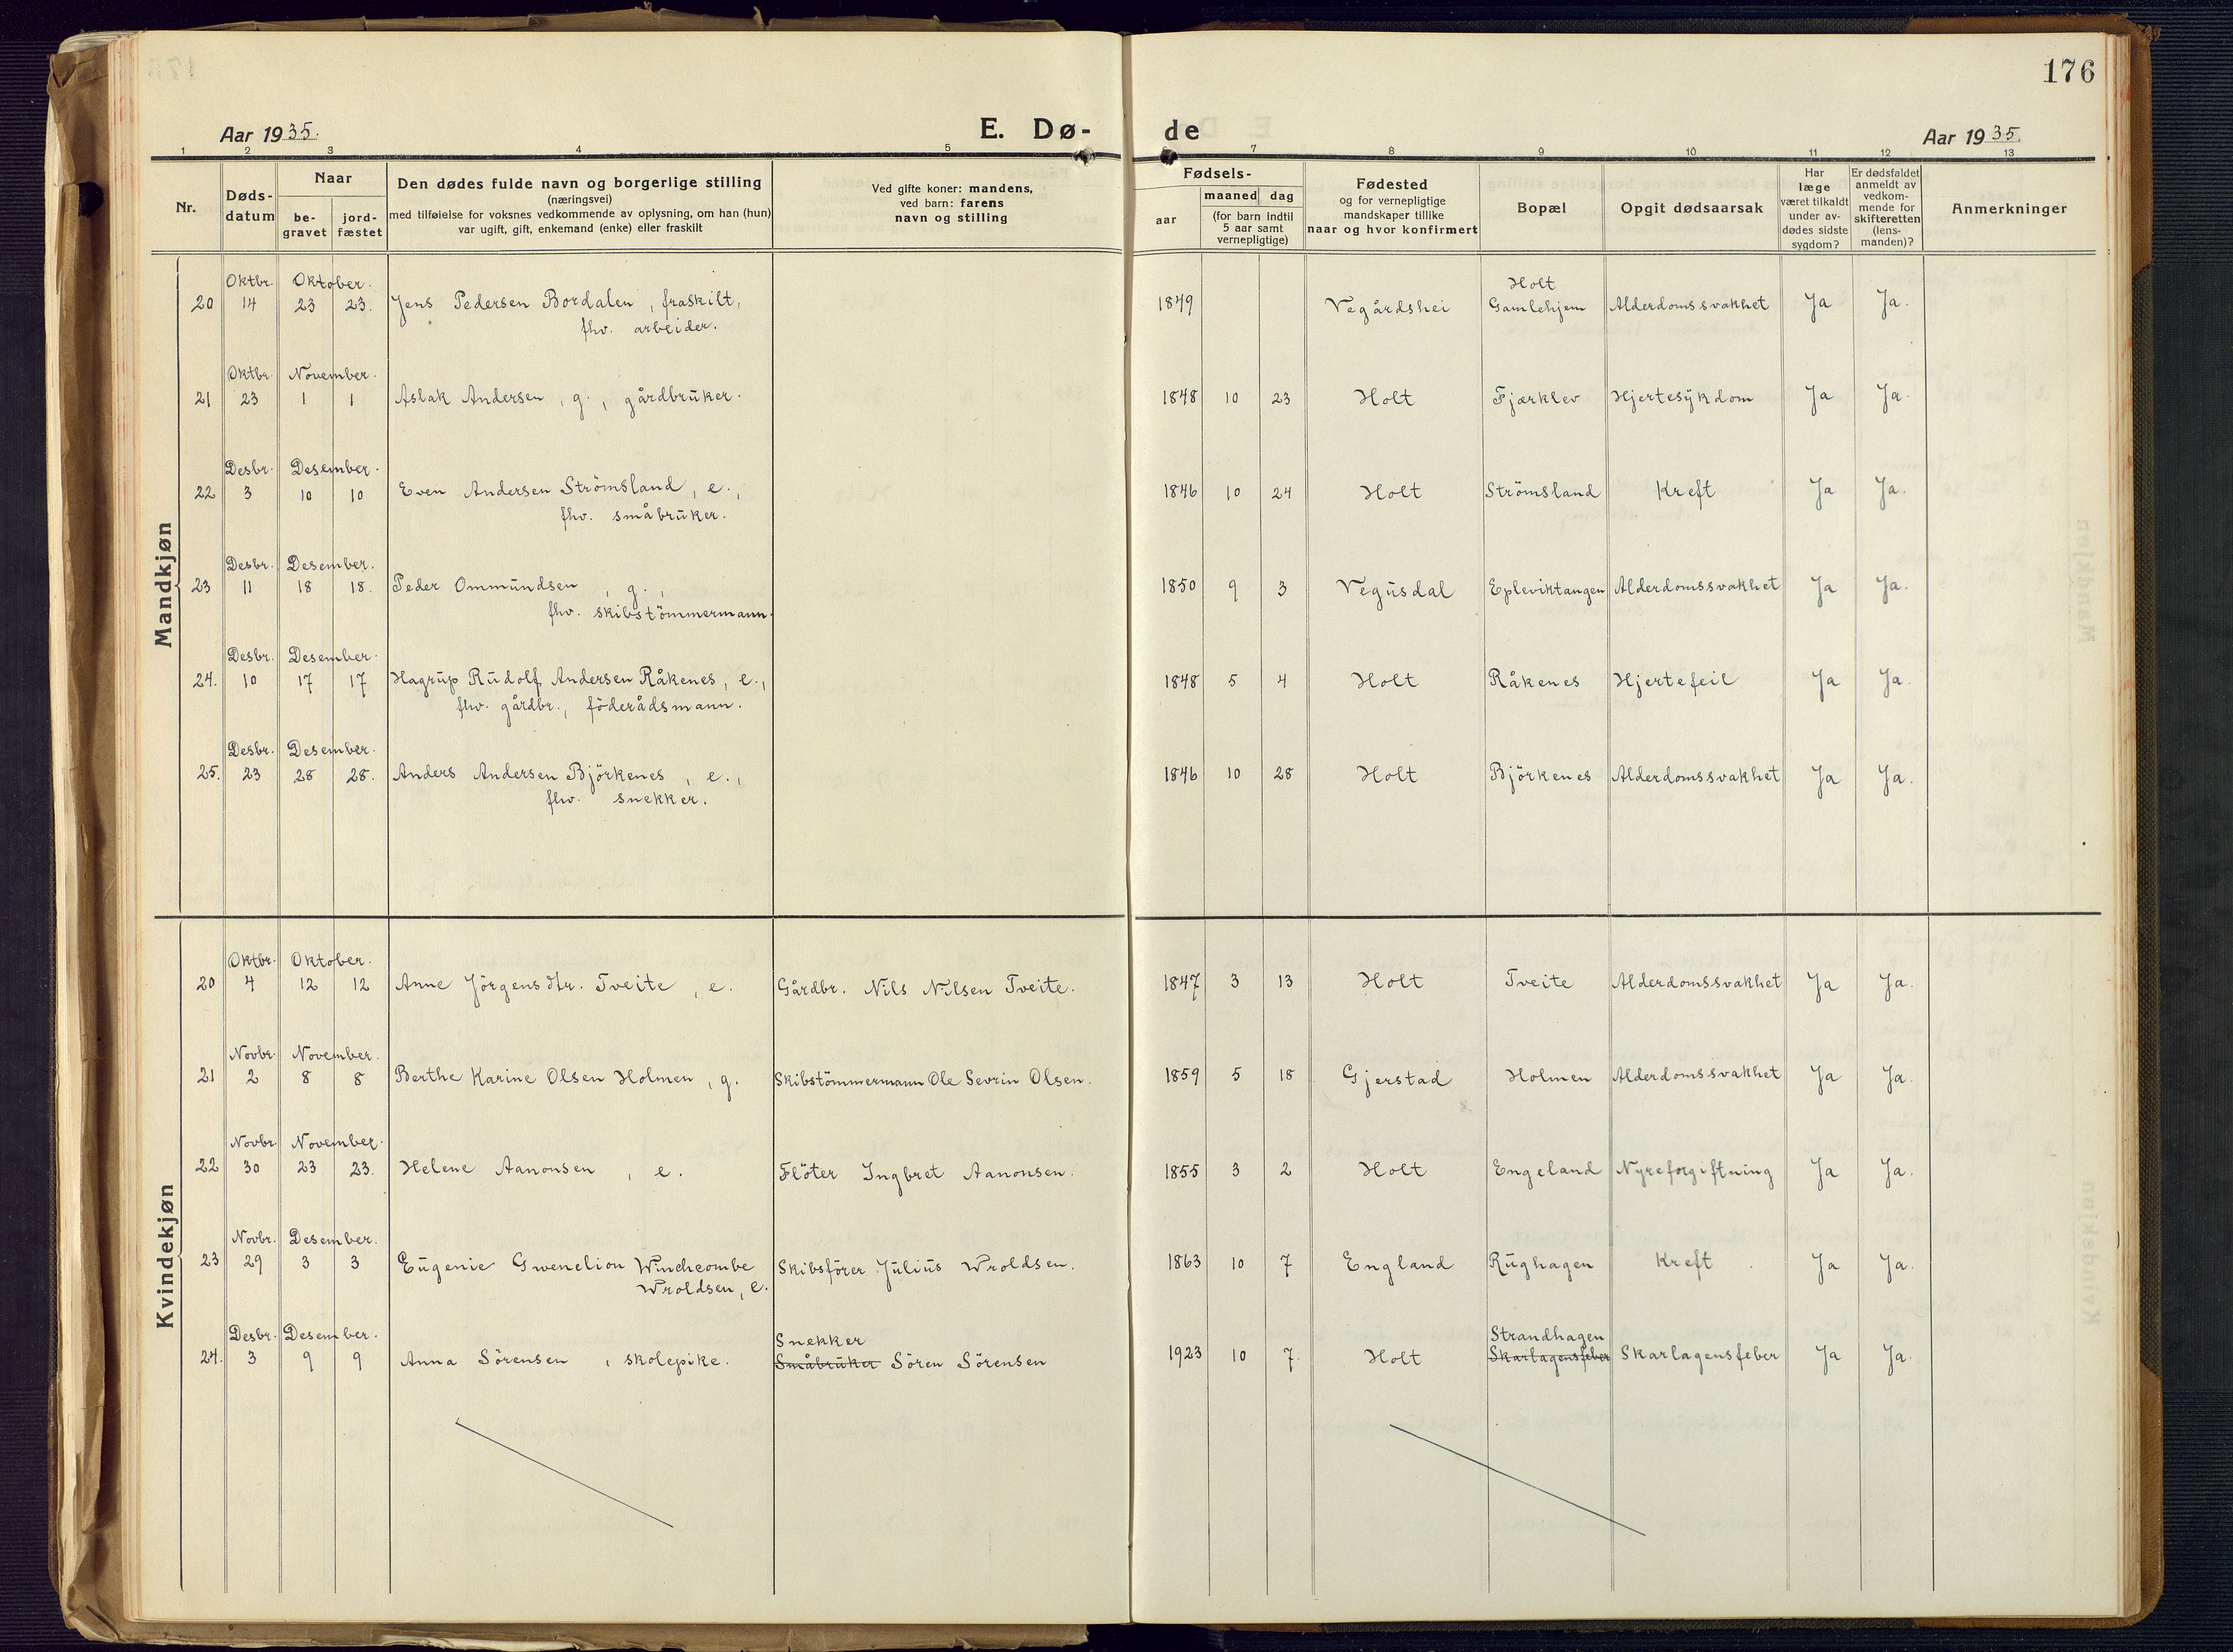 176
Aar 1935.
E. Dø-
de
Aar 1935.
1 2 3 4 5 7 8 9 10 11 12 13
Nr.
Døds-
datum
Naar
be-
gravet
jord-
fæstet
Den dødes fulde navn og borgerlige stilling
(næringsvei)
med tilføielse for voksnes vedkommende av oplysning, om han (hun)
var ugift, gift, enkemand (enke) eller fraskilt
Ved gifte koner: mandens,
ved barn: farens
navn og stilling
Fødsels-
aar
maaned dag
(for barn indtil
5 aar samt
vernepligtige)
Fødested
og for vernepligtige
mandskaper tillike
naar og hvor konfirmert
Bopæl
Opgit dødsaarsak
Har
læge
været tilkaldt
under av-
dødes sidste
sygdom?
Er dødsfaldet
anmeldt av
vedkom-
mende for
skifteretten
(lens-
manden)?
Anmerkninger
Mandkjøn
Oktbr. Oktober. Holt
20 14 23 23. Jens Pedersen Bordalen, fraskilt, 1849 Vegårdshei Gamlehjem Alderdomssvakhet Ja Ja.
fhv. arbeider.
Oktbr. November.
21 23 1 1 Aslak Andersen, g., gårdbruker. 1848 10 23 Holt Fjærklev Hjertesykdom Ja Ja.
Desbr. Desember.
22 3 10 10 Even Andersen Strömsland, e., 1846 10 24 Holt Strömsland Kreft Ja Ja.
fhv. småbruker.
Desbr. Desember.
23 11 18 18. Peder Ommundsen, g., 1850 9 3 Vegusdal Epleviktangen Alderdomssvakhet Ja Ja.
fhv. skibstömmermann.
Desbr. Desember.
24. 10 17 17 Hagrup Rudolf Andersen Råkenes, e., 1848 5 4 Holt Råkenes Hjertefeil Ja Ja.
fhv. gårdbr., föderådsmann.
Desbr. Desember.
25. 23 28 28. Anders Andersen Björkenes, e., 1846 10 28 Holt Björkenes Alderdomssvakhet Ja Ja.
fhv. snekker.
Kvindekjøn
Oktbr. Oktober.
20 4 12 12 Anne Jörgensdtr. Tveite, e. Gårdbr. Nils Nilsen Tveite. 1847 3 13 Holt Tveite Alderdomssvakhet Ja Ja.
Novbr. November.
21 2 8 8 Berthe Karine Olsen Holmen, g. Skibstömmermann Ole Sevrin Olsen. 1859 5 18 Gjerstad Holmen Alderdomssvakhet Ja Ja.
Novbr. November.
22 30 23 23. Helene Aanonsen, e. Flöter Ingbret Aanonsen. 1855 3 2 Holt Engeland Nyreforgiftning Ja Ja.
Novbr. Desember.
23 29 3 3 Eugenie Gwenelion Winchcombe Skibsförer Julius Wroldsen. 1863 10 7 England Rughagen Kreft Ja Ja.
Wroldsen, e.
Desbr. Desember. Snekker Strandhagen
24. 3 9 9 Anna Sörensen, skolepike. Småbruker Sören Sörensen 1923 10 7. Holt Skarlagensfeber Skarlagensfeber Ja Ja.